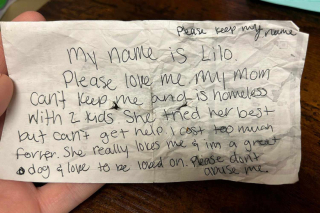 Please keep my name
My name is Lilo.
Please love me my mom
can't keep me and is homeless
with 2 kids She tried her best
but can't get help. I cost too much
for her. She really loves me & im a great
dog & love to be loved on. Please don't
abuse me.